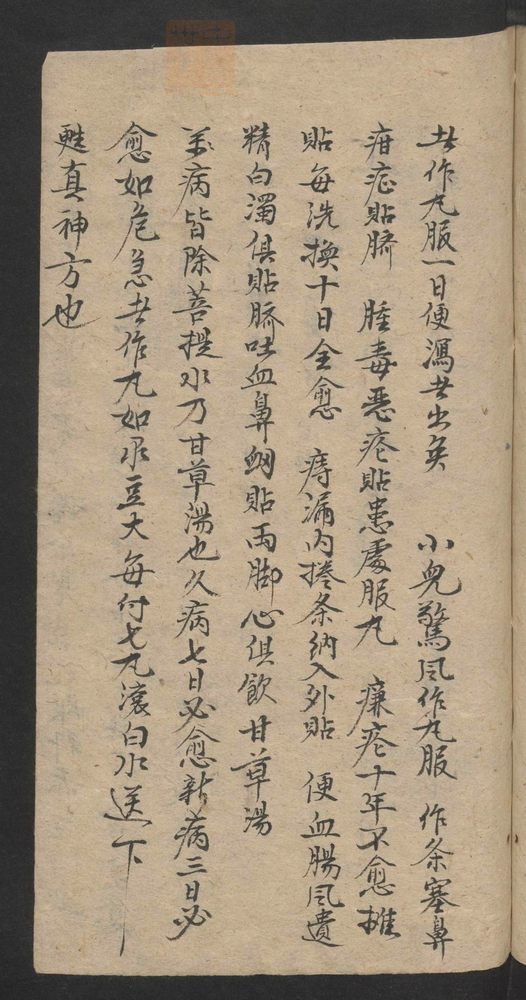 共作丸服一日便瀉共出矣 小兒驚風作丸服 作条塞鼻
疳症貼臍 腫毒惡瘡貼患處服丸 臁瘡十年不愈摊
貼每洗換十日全愈 痔漏内捲条納入外貼 便血腸風遺
精白濁俱貼臍吐血鼻衂貼両脚心俱飲甘草湯
萬病皆除菩提水乃甘草湯也久病七日必愈新病三日必
愈如危急共作丸如菉豆大每付七丸滚白水送下
甦真神方也